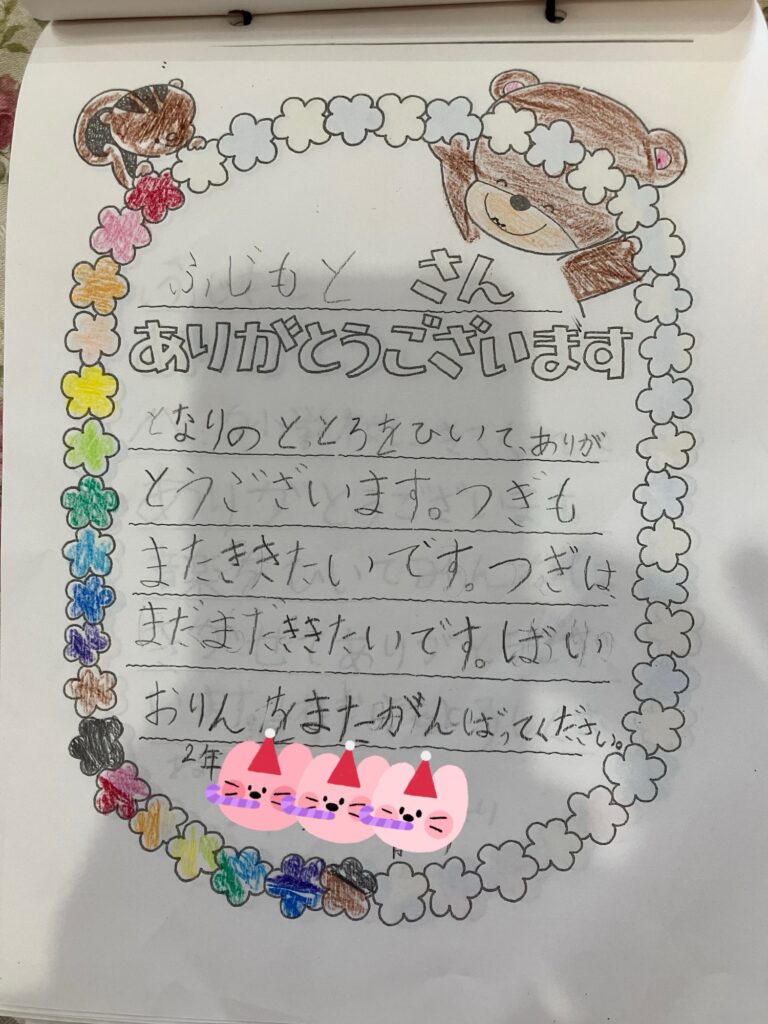 ふじもと さん
ありがとうございます
となりのととろをひいて、ありが
とうございます。つぎも
またききたいです。つぎは
まだまだききたいです。ばい
おりんをまたがんばってください。
2年